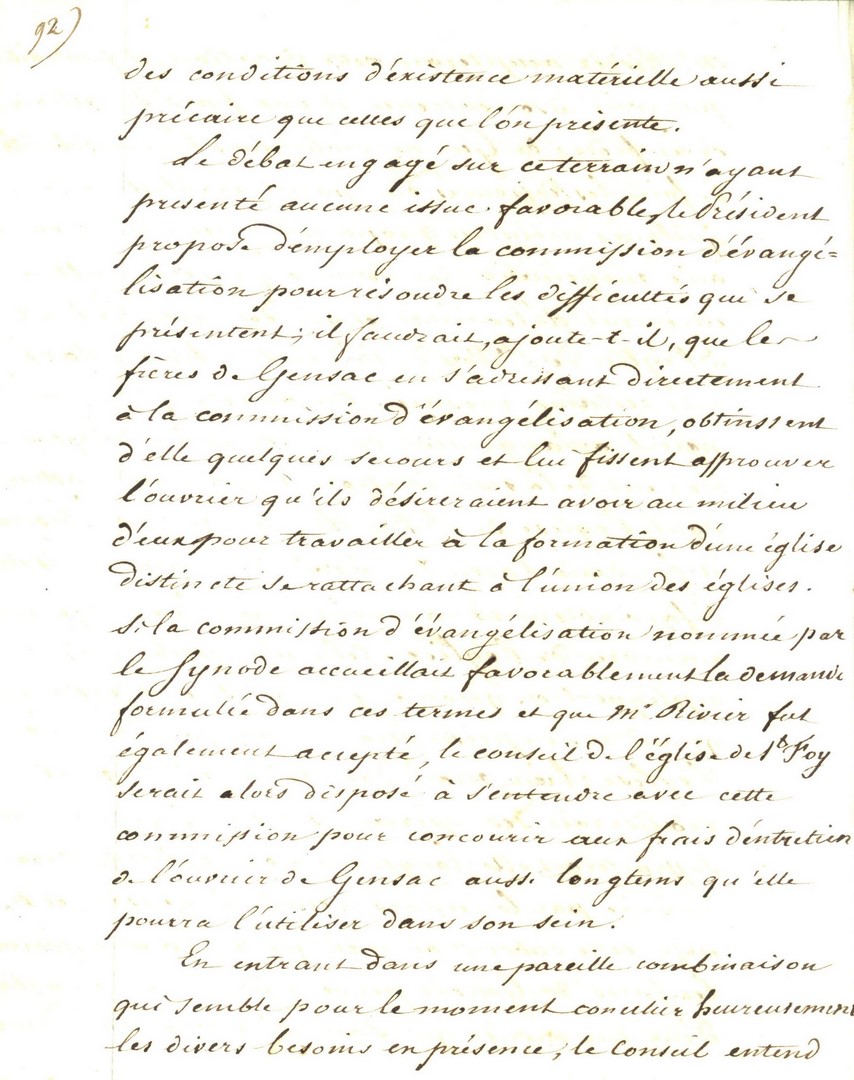 92)
des conditions d'existence matérielle aussi
précaire que celles que l'on présente.
Le débat engagé sur ce terrain n'ayant
presenté aucune issue favorable, le Président
propose d'employer la commission d'évangé=
lisation pour résoudre les difficultés qui se
présentent; il faudrait, ajoute-t-il, que les
frères de Gensac en s'adressant directement
à la commission d'évangélisation, obtinssent
d'elle quelques secours et lui fissent approuver
l'ouvrier qu'ils désireraient avoir au milieu
d'eux pour travailler à la formation d'une église
distincte se rattachant à l'union des églises.
Si la commission d'évangélisation nommée par
le Synode accueillait favorablement la demande
formulée dans ces termes et que Mr Rivier fut
également accepté, le conseil de l'église de Ste Foy
serait alors disposé à s'entendre avec cette
commission pour concourir aux frais d'entretien
de l'ouvrier de Gensac aussi longtems qu'elle
pourra l'utiliser dans son sein.
En entrant dans une pareille combinaison
qui semble pour le moment concilier heureusement
les divers besoins en présence, le Conseil entend